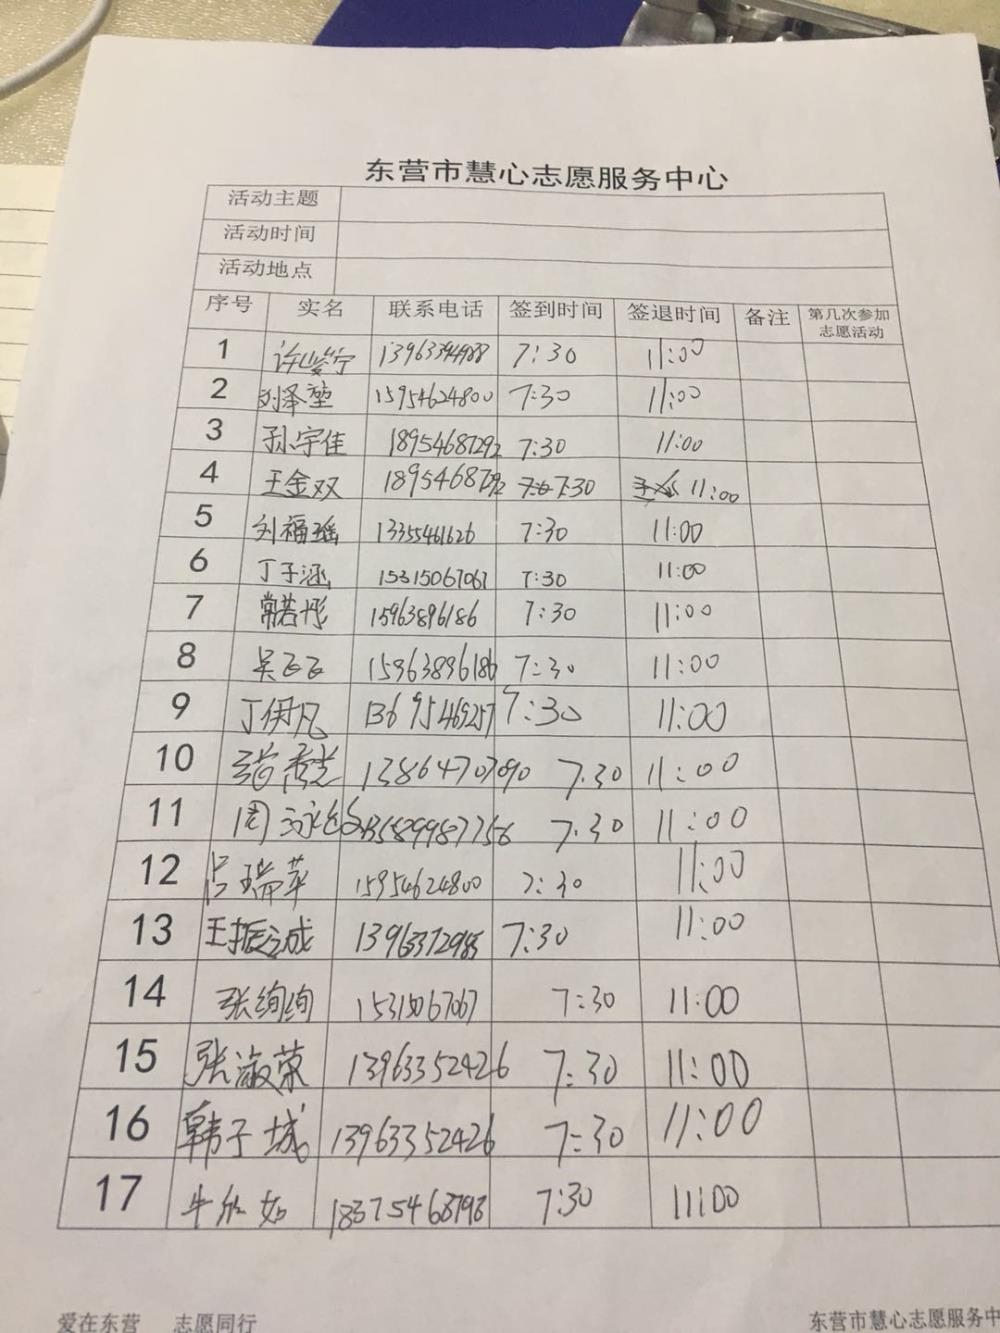 东营市慧心志愿服务中心
活动主题
活动时间
活动地点
序号 实名 联系电话 签到时间 签退时间 备注 第几次参加志愿活动
1 7:30 11:00
2 刘泽堃 15954624800 7:30 11:00
3 孙宇佳 18954687292 7:30 11:00
4 王金双 18954687292 7:30 11:00
5 刘福瑶 13355461626 7:30 11:00
6 丁子涵 15315067067 7:30 11:00
7 常若彤 15963896186 7:30 11:00
8 吴飞飞 15963896186 7:30 11:00
9 丁伊凡 13695469257 7:30 11:00
10 13864707090 7.30 11:00
11 周 13589987756 7.30 11:00
12 吕瑞苹 15954624800 7:30 11:00
13 王振成 13963372985 7:30 11:00
14 张绚绚 15315067067 7:30 11:00
15 张淑荣 13963352426 7:30 11:00
16 韩子城 13963352426 7:30 11:00
17 牛欣如 7:30 11:00
爱在东营 志愿同行 东营市慧心志愿服务中